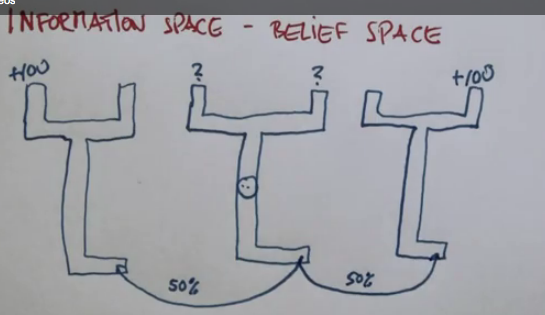 eos
INFORMATION SPACE - BELIEF SPACE
+100 ? ? +100
50% 50%